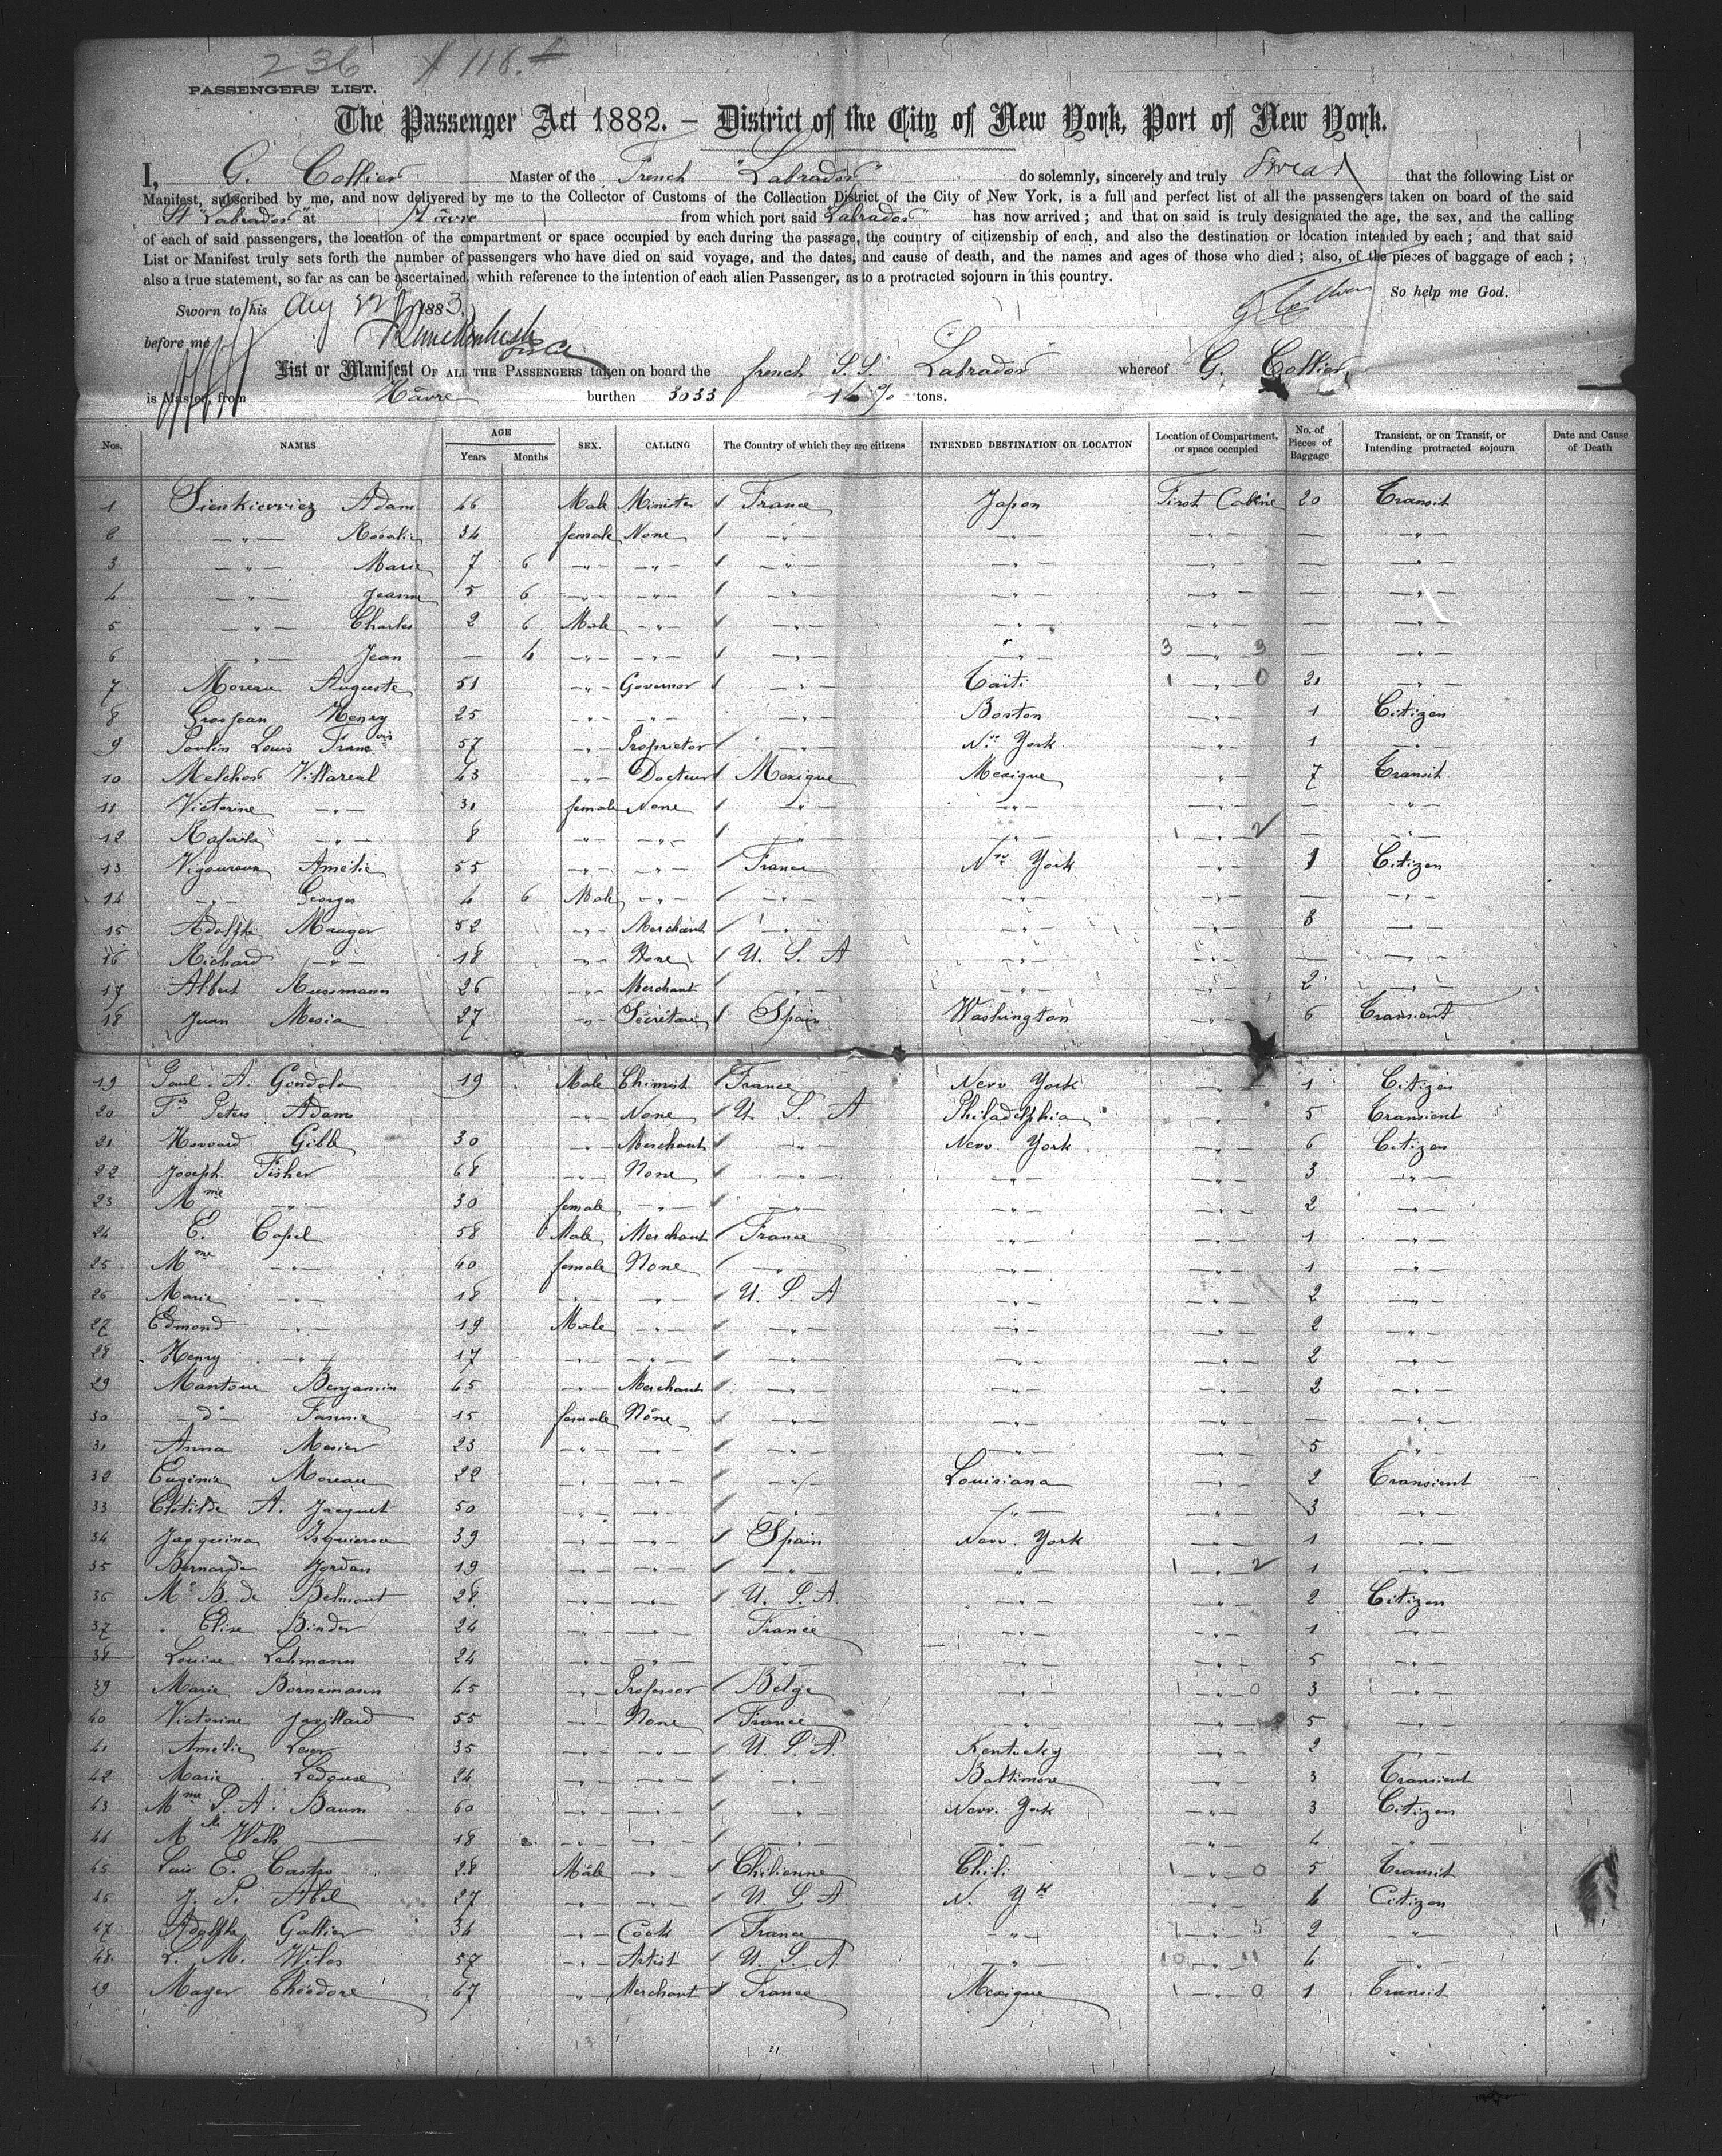 236 118.
PASSENGERS' LIST.
The Passenger Act 1882. — District of the City of New York, Port of New York.
I, G. Collier Master of the French "Labrador" do solemnly, sincerely and truly Swear that the following List or
Manifest, subscribed by me, and now delivered by me to the Collector of Customs of the Collection District of the City of New York, is a full and perfect list of all the passengers taken on board of the said
St "Labrador" at Hâvre from which port said "Labrador" has now arrived; and that on said is truly designated the age, the sex, and the calling
of each of said passengers, the location of the compartment or space occupied by each during the passage, the country of citizenship of each, and also the destination or location intended by each; and that said
List or Manifest truly sets forth the number of passengers who have died on said voyage, and the dates, and cause of death, and the names and ages of those who died; also, of the pieces of baggage of each;
also a true statement, so far as can be ascertained, whith reference to the intention of each alien Passenger, as to a protracted sojourn in this country.
So help me God.
Sworn to this Aug 22 1883.
before me
List or Manifest OF ALL THE PASSENGERS taken on board the french S.S. Labrador whereof G. Collier
is Master, from Hâvre burthen 3033 tons.
Nos. NAMES AGE Years Months SEX. CALLING The Country of which they are citizens INTENDED DESTINATION OR LOCATION Location of Compartment, or space occupied No. of Pieces of Baggage Transient, or on Transit, or Intending protracted sojourn Date and Cause of Death
1 Sienkiewicz Adam 46 Male Minister France Japon First Cabine 20 Transit
2 —"— Rosalie 34 female None —"— —"— —"— — —"—
3 —"— Marie 7 6 —"— —"— —"— —"— —"— — —"—
4 —"— Jeanne 5 6 —"— —"— —"— —"— —"— — —"—
5 —"— Charles 2 6 Male —"— —"— —"— —"— — —"—
6 —"— Jean — 4 —"— —"— —"— —"— 3 —"— 3 — —"—
7 Moreau Auguste 51 —"— Governor —"— Taïti 1 —"— 0 21 —"—
8 Grosjean Henry 25 —"— —"— —"— Boston —"— 1 Citizen
9 Poulin Louis Francois 57 —"— Proprietor —"— New York —"— 1 —"—
10 Melchor Villareal 43 —"— Docteur Mexique Mexique —"— 7 Transit
11 Victorine —"— 31 female None —"— —"— —"— — —"—
12 —"— 8 —"— —"— —"— —"— 1 —"— 2 — —"—
13 Vigoureux Amélie 55 —"— —"— France New York —"— 1 Citizen
14 —"— Georges 4 6 Male —"— —"— —"— —"— — —"—
15 Adolphe Mauger 52 —"— Merchant —"— —"— —"— 8 —"—
16 Richard —"— 18 —"— None U. S. A —"— —"— — —"—
17 Albert Russmann 26 —"— Merchant —"— —"— —"— 2 —"—
18 Juan Mesia 27 —"— Sécrétaire Spain Washington —"— 6 Transient
19 Paul. A. Gondolo 19 Male Chimist France New York —"— 1 Citizen
20 Peters Adams —"— None U. S. A Philadelphia —"— 5 Transient
21 Howard Gibb 30 —"— Merchant —"— New. York —"— 6 Citizen
22 Joseph Fisher 68 —"— None —"— —"— —"— 3 —"—
23 Mme —"— 30 female —"— —"— —"— —"— 2 —"—
24 E. Capel 58 Male Merchant France —"— —"— 1 —"—
25 Mme —"— 40 female None —"— —"— —"— 1 —"—
26 Marie —"— 18 —"— —"— U. S. A —"— —"— 2 —"—
27 Edmond —"— 19 Male —"— —"— —"— —"— 2 —"—
28 Henry —"— 17 —"— —"— —"— —"— —"— 2 —"—
29 Mantoue Benjamin 45 —"— Merchant —"— —"— —"— 2 —"—
30 —do— Fannie 15 female None —"— —"— —"— — —"—
31 Anna Mosier 23 —"— —"— —"— —"— —"— 5 —"—
32 Euginie Moreau 22 —"— —"— —"— Louisiana —"— 2 Transient
33 Clotilde A. Jacquet 50 —"— —"— —"— —"— —"— 3 —"—
34 Jaquina Isquierva 39 —"— —"— Spain New. York —"— 1 —"—
35 Bernarda Jordan 19 —"— —"— —"— —"— 1 —"— 2 1 —"—
36 Me B. de Belmont 28 —"— —"— U. S. A. —"— —"— 2 Citizen
37 " Elise Binder 24 —"— —"— France —"— —"— 1 —"—
38 Louise Lehmann 24 —"— —"— —"— —"— —"— 5 —"—
39 Marie Bornemann 45 —"— Professor Belge —"— 1 —"— 0 3 —"—
40 Victorine Javillard 55 —"— None France —"— —"— 5 —"—
41 Amélie 35 —"— —"— U. S. A. Kentucky —"— 2 —"—
42 Marie Ledouse 24 —"— —"— —"— Baltimore —"— 3 Transient
43 Mme S. A. Baum 60 —"— —"— —"— New. York —"— 3 Citizen
44 Mlle 18 —"— —"— —"— —"— —"— 4 —"—
45 Luis E. Castro 28 Mâle —"— Chilienne Chili 1 —"— 0 5 Transit
46 J. P. Abel 27 —"— —"— U. S. A. N. Yk —"— 4 Citizen
47 Adolphe Gallier 34 —"— Cook France —"— —"— 5 2 —"—
48 L. M. Wiles 57 —"— Artist U. S. A —"— 10 —"— 11 4 —"—
49 Mayer Théodore 47 —"— Merchant France Mexique 1 —"— 0 1 Transit